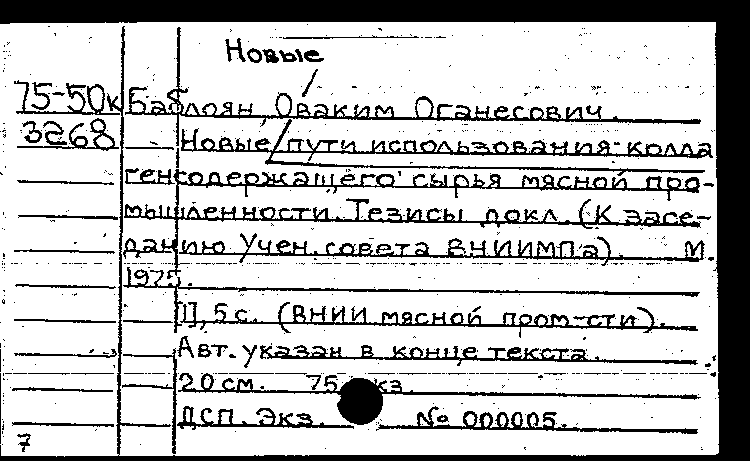 Новые
75-50к Баблоян, Оваким Оганесович.
3268 Новые пути использования колла
генсодержащего сырья мясной про-
мышленности. Тезисы докл. (К засе-
данию Учен. совета ВНИИМПа). М.
1975.
[1], 5 с. (ВНИИ мясной пром-сти).
Авт. указан в конце текста.
20 см. 75 экз.
ДСП. Экз. № 000005.
7